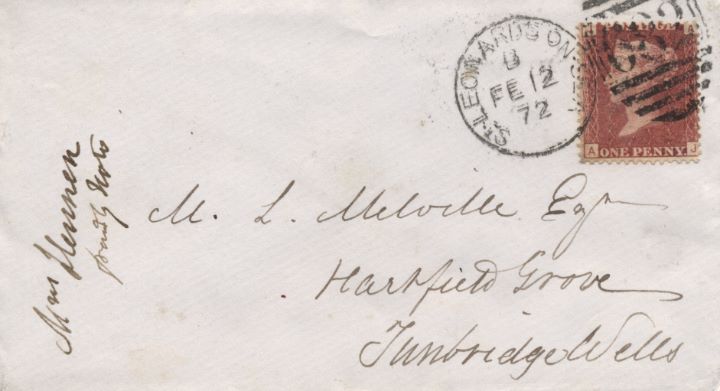 ST. LEONARDS ON SEA
B
FE 12
72
J A
A J
ONE PENNY.
M. L. Melville Esqr
Hartfield Grove
Tunbridge Wells
Mrs Hennen